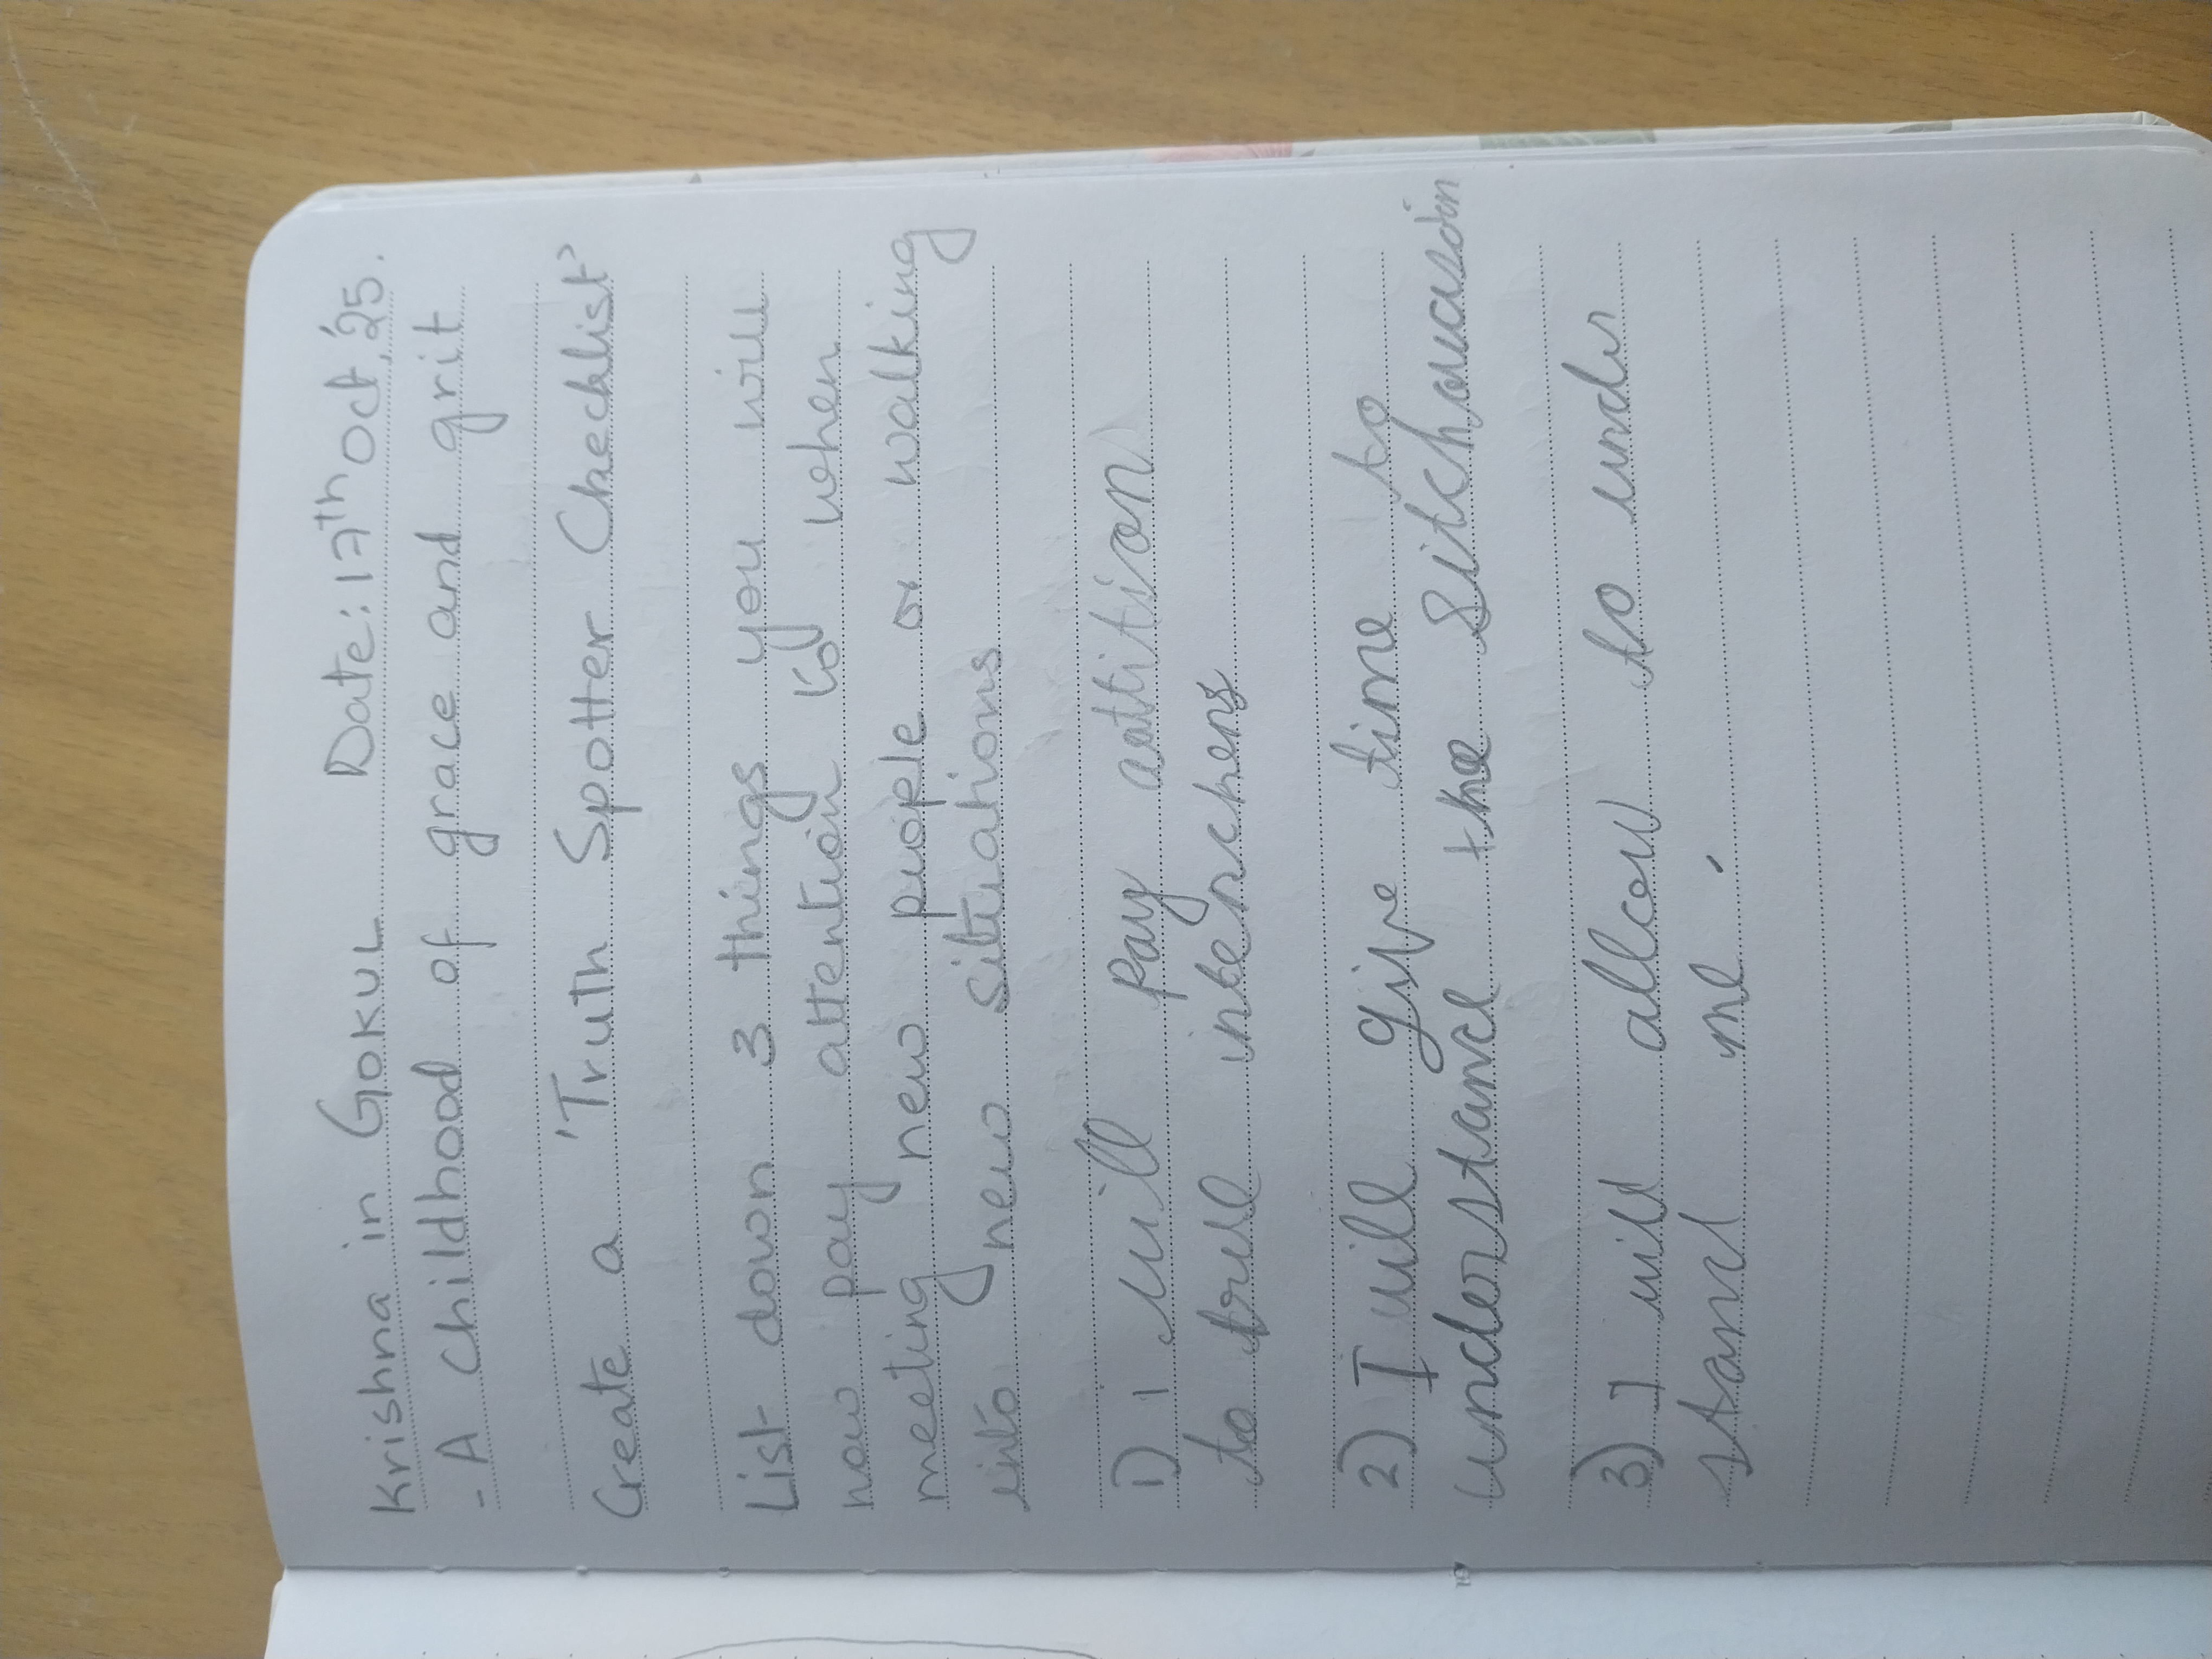 Krishna in GOKUL Date: 17th Oct, '25.
- A Childhood of grace and grit
Create a 'Truth Spotter Checklist'
List down 3 things you will
now pay attention to when
meeting new people or walking
into new situations
1) I will pay antition
to true intenschens
2) I will give time to
understance the Sitchouasion
3) I will allcow to under
stand me.